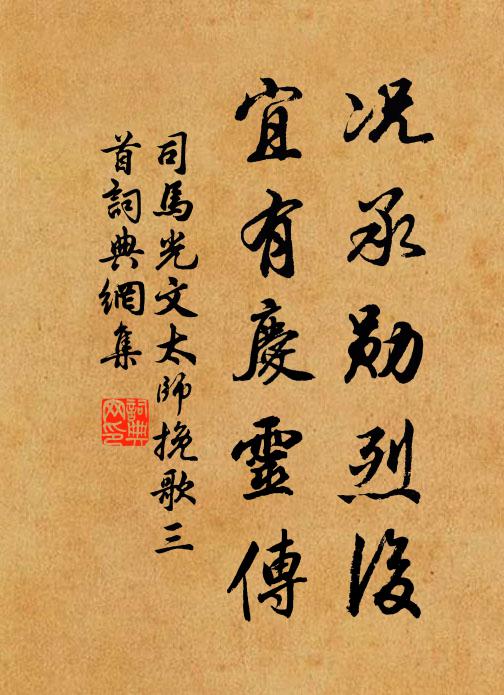 况承勋烈後
宜有慶靈傳
司馬光文太師挽歌三
首詞典網集
詞典
网印